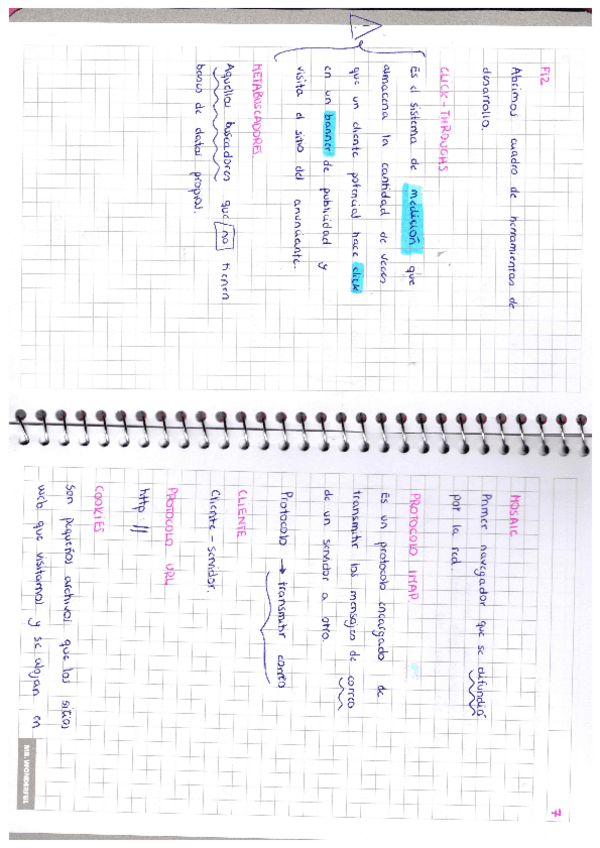 F12
Abrimos cuadro de herramientas de
desarrollo.
CLICK-THROUGHS
Es el sistema de medición que
almacena la cantidad de veces
que un cliente potencial hace click
en un banner de publicidad y
visita el sitio del anunciante.
METABUSCADORES
Aquellos buscadores que no tienen
bases de datos propias.
7
MOSAIC
Primer navegador que se difundió
por la red.
PROTOCOLO IMAP
Es un protocolo encargado de
transmitir los mensajes de correo
de un servidor a otro.
Protocolo → transmitir correo
CLIENTE
Cliente - servidor.
PROTOCOLO URL
http://
COOKIES
son pequeños archivos que los sitios
web que visitamos y se alojan en
MR. WONDERFUL